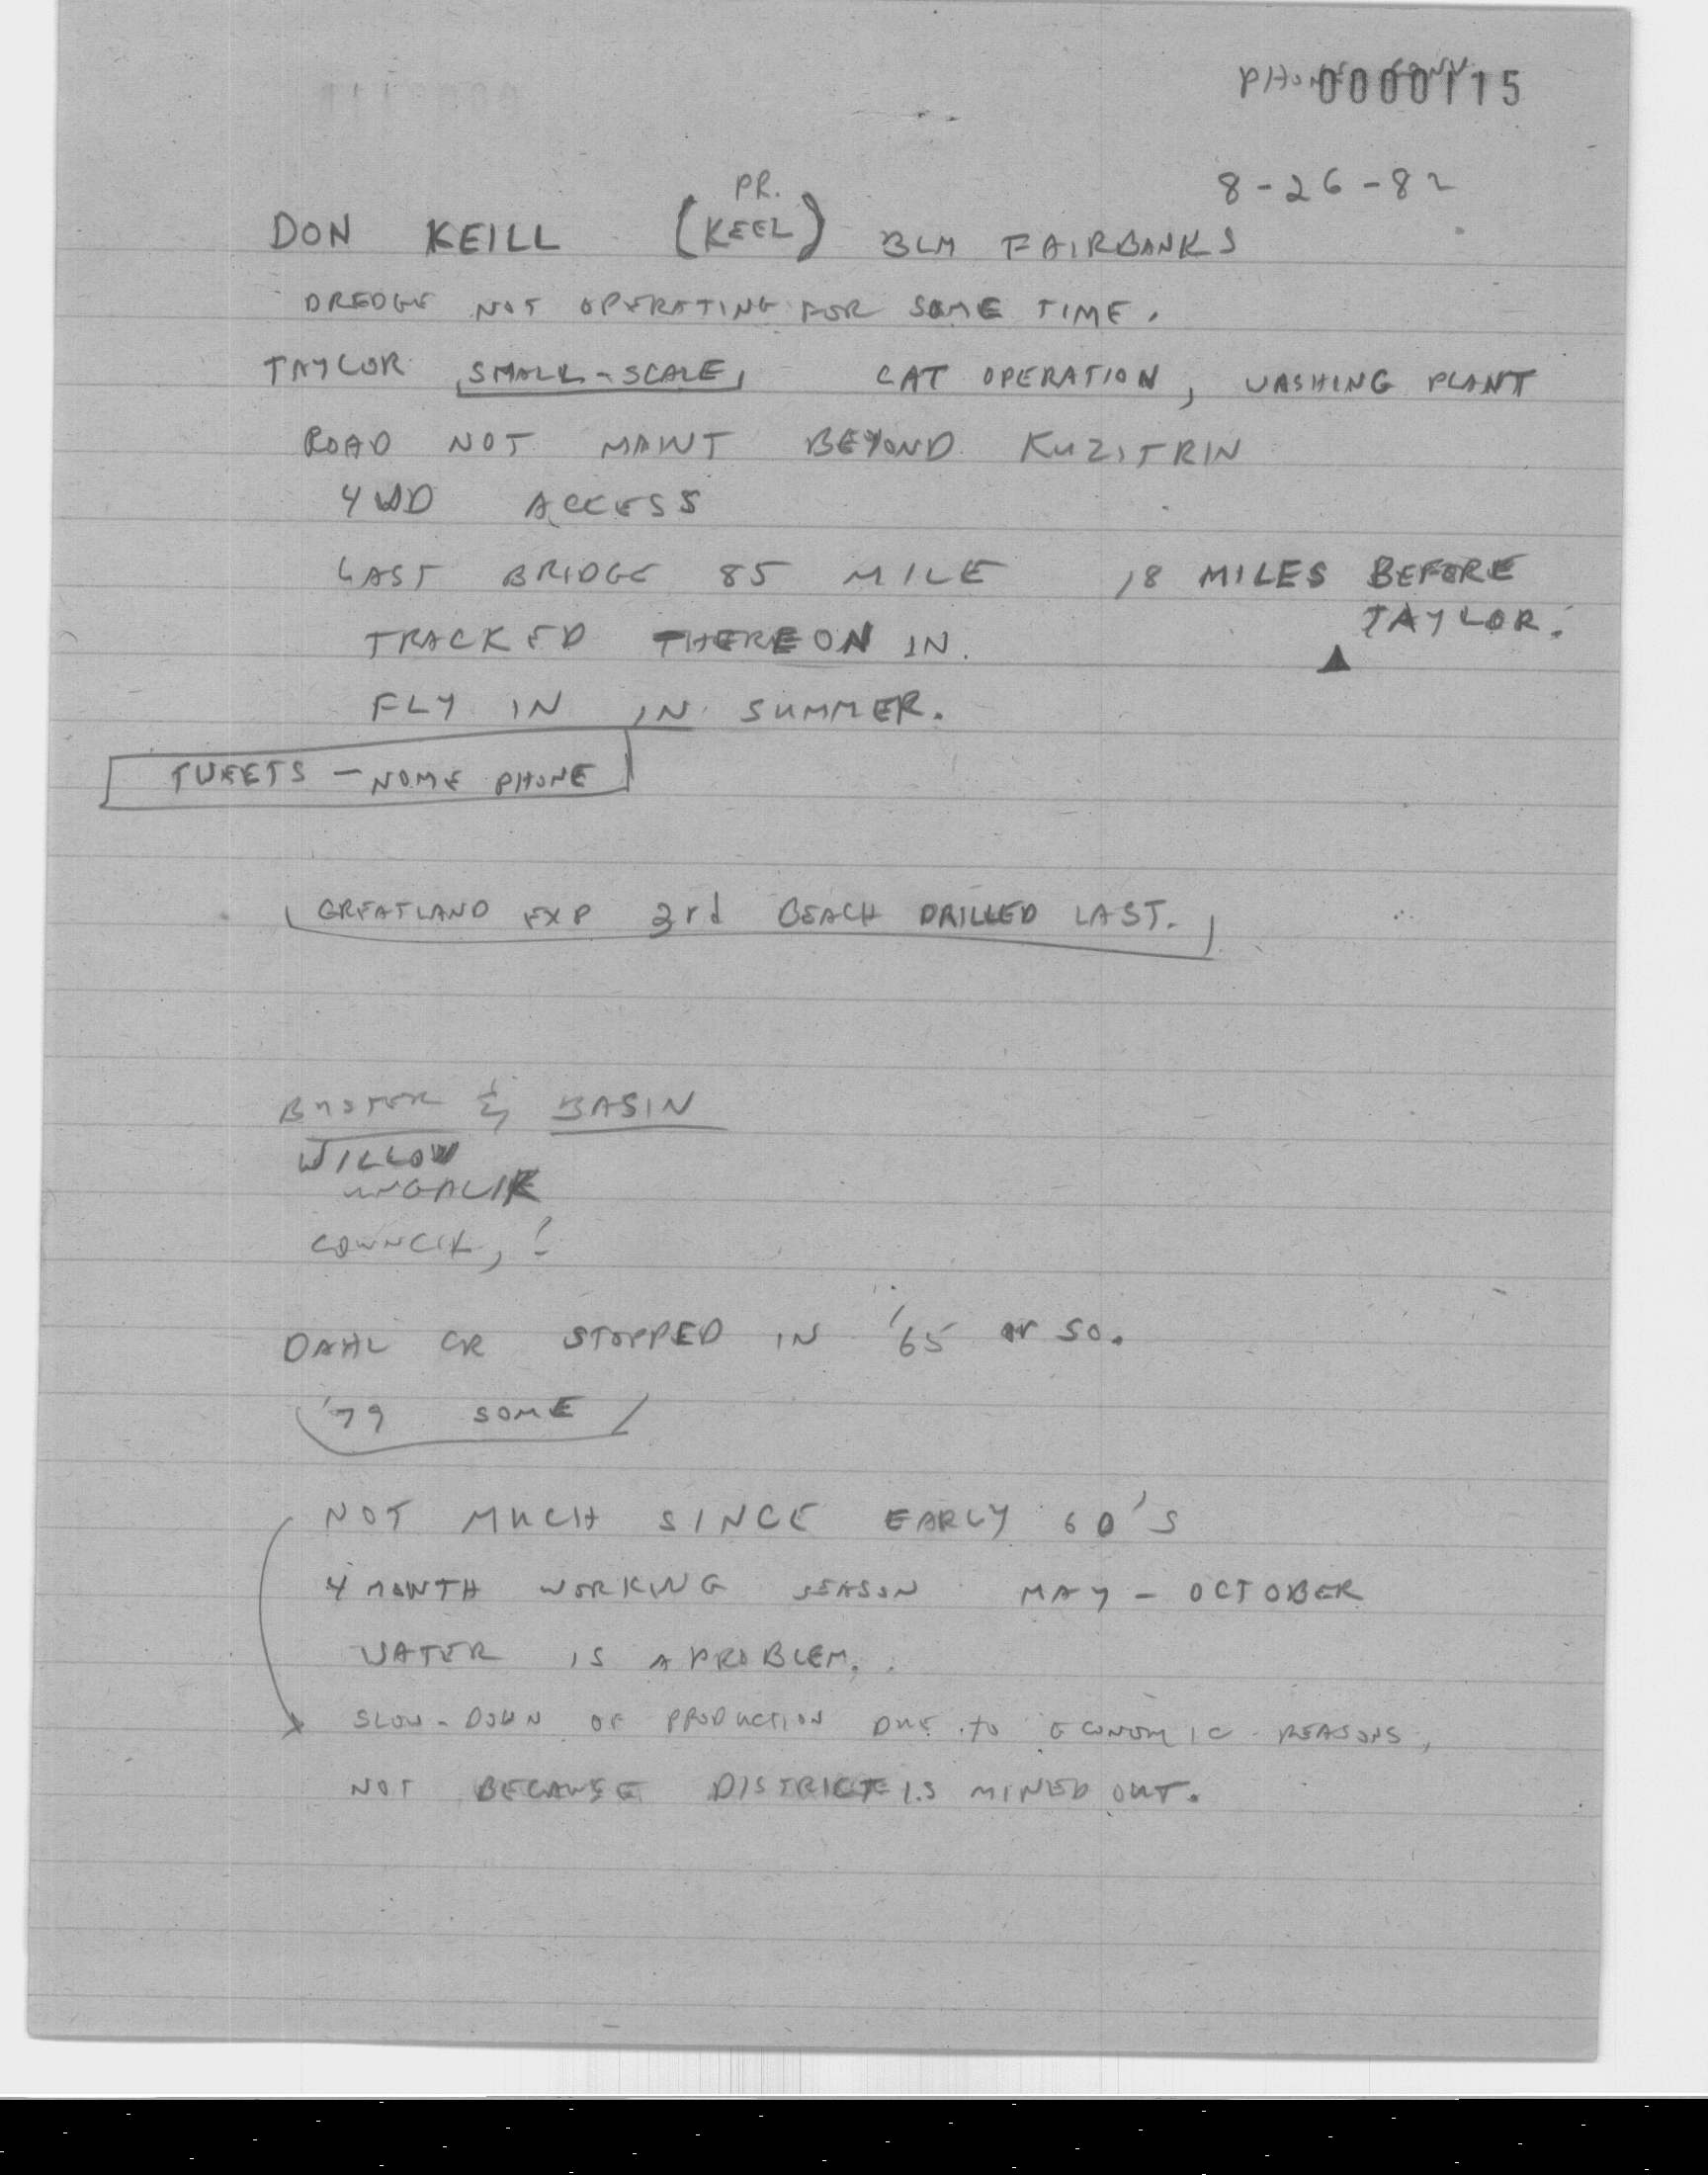 PHONE CONV.
0000115
8-26-82
PR.
DON KEILL (KEEL) BLM FAIRBANKS
DREDGE NOT OPERATING FOR SOME TIME.
TAYLOR SMALL-SCALE, CAT OPERATION, WASHING PLANT
ROAD NOT MAINT BEYOND KUZITRIN
4WD ACCESS
LAST BRIDGE 85 MILE 18 MILES BEFORE
TAYLOR.
TRACKED THEREON IN.
FLY IN IN SUMMER.
TWEETS - NOME PHONE
GREATLAND EXP 3rd BEACH DRILLED LAST.
BUSTER & BASIN
WILLOW
UNGALIK
COUNCIL, !
DAHL CR STOPPED IN '65 or so.
'79 SOME
NOT MUCH SINCE EARLY 60'S
4 MONTH WORKING SEASON MAY - OCTOBER
WATER IS A PROBLEM.
SLOW-DOWN OF PRODUCTION DUE to ECONOMIC REASONS,
NOT BECAUSE DISTRICT IS MINED OUT.